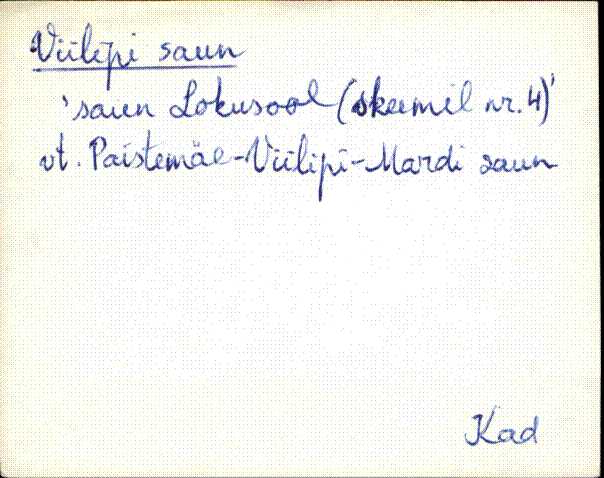 Viilipi saun
'saun Lokusool (skeemil nr. 4)'
vt. Paistemäe-Viilipi-Mardi saun
Kad